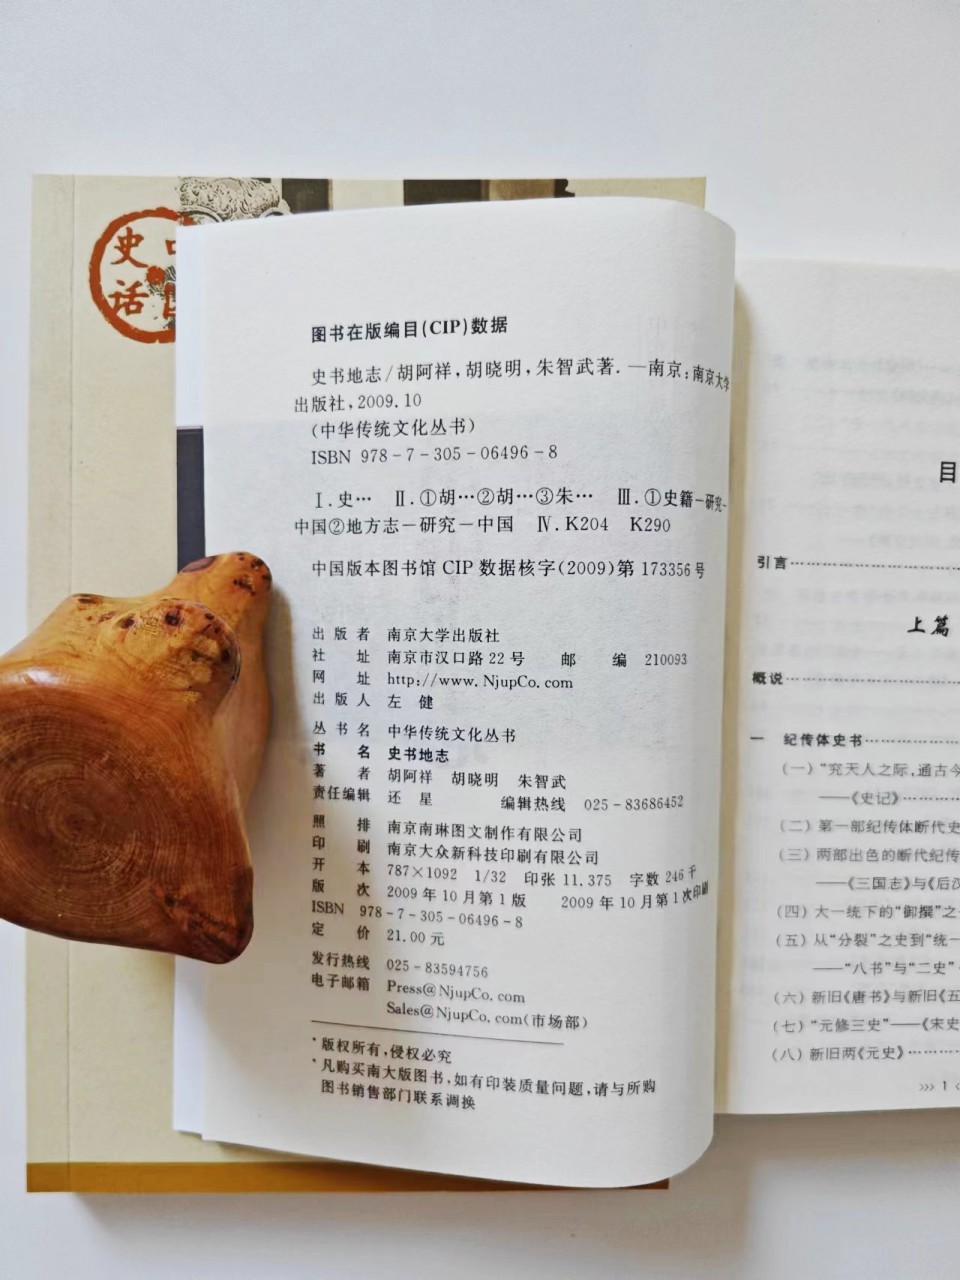 史
话
图书在版编目(CIP)数据
史书地志/胡阿祥,胡晓明,朱智武著.—南京:南京大学
出版社,2009.10
(中华传统文化丛书)
ISBN 978-7-305-06496-8
Ⅰ.史… Ⅱ.①胡…②胡…③朱… Ⅲ.①史籍-研究-
中国②地方志-研究-中国 Ⅳ.K204 K290
中国版本图书馆CIP数据核字(2009)第173356号
出版者 南京大学出版社
社址 南京市汉口路22号 邮编 210093
网址 http://www.NjupCo.com
出版人 左健
丛书名 中华传统文化丛书
书名 史书地志
著者 胡阿祥 胡晓明 朱智武
责任编辑 还星 编辑热线 025-83686452
照排 南京南琳图文制作有限公司
印刷 南京大众新科技印刷有限公司
开本 787×1092 1/32 印张 11.375 字数 246千
版次 2009年10月第1版 2009年10月第1次印刷
ISBN 978-7-305-06496-8
定价 21.00元
发行热线 025-83594756
电子邮箱 Press@NjupCo.com
Sales@NjupCo.com(市场部)
*版权所有,侵权必究
*凡购买南大版图书,如有印装质量问题,请与所购
图书销售部门联系调换
目
引言……………
上篇
概说……………
一 纪传体史书……………
(一)“究天人之际,通古今
——《史记》…………
(二)第一部纪传体断代史
(三)两部出色的断代纪传
——《三国志》与《后汉
(四)大一统下的“御撰”之
(五)从“分裂”之史到“统一
——“八书”与“二史”
(六)新旧《唐书》与新旧《五
(七)“元修三史”——《宋史
(八)新旧两《元史》…………
>>> 1 <